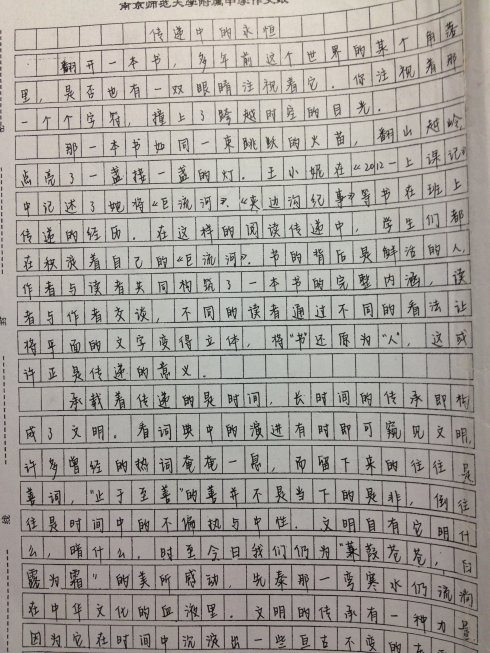 南京师范大学附属中学作文纸
传递中的永恒
翻开一本书，多年前这个世界的某个角落
里，是否也有一双眼睛注视着它。你注视着那
一个个字符，撞上了跨越时空的目光。
那一本书如同一束跳跃的火苗，翻山越岭，
点亮了一盏接一盏的灯。王小妮在《2012—上课记》
中记述了她将《巨流河》、《夹边沟纪事》等书在班上
传递的经历。在这样的阅读传递中，学生们都
在积淀着自己的《巨流河》。书的背后是鲜活的人，
作者与读者共同构筑了一本书的完整内涵，读
者与作者交谈，不同的读者通过不同的看法让
将平面的文字变得立体，将“书”还原为“人”，这或
许正是传递的意义。
承载着传递的是时间，长时间的传承即构
成了文明。看词典中的演进有时即可窥见文明，
许多曾经的热词奄奄一息，而留下来的往往是
善词，“止于至善”的善并不是当下的是非，倒往
往是时间中的不偏执与中性。文明自有它明什
么，晴什么，时至今日我们仍为“蒹葭苍苍，白
露为霜”的美所感动，先秦那一弯寒水仍流淌
在中华文化的血液里。文明的传承有一种力量
因为它在时间中沉淀出一些亘古不变的